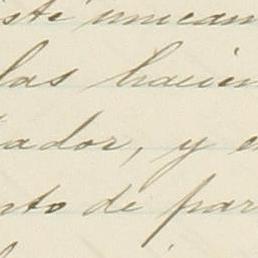 iste unicam
las hacien
tador, y e
nto de par